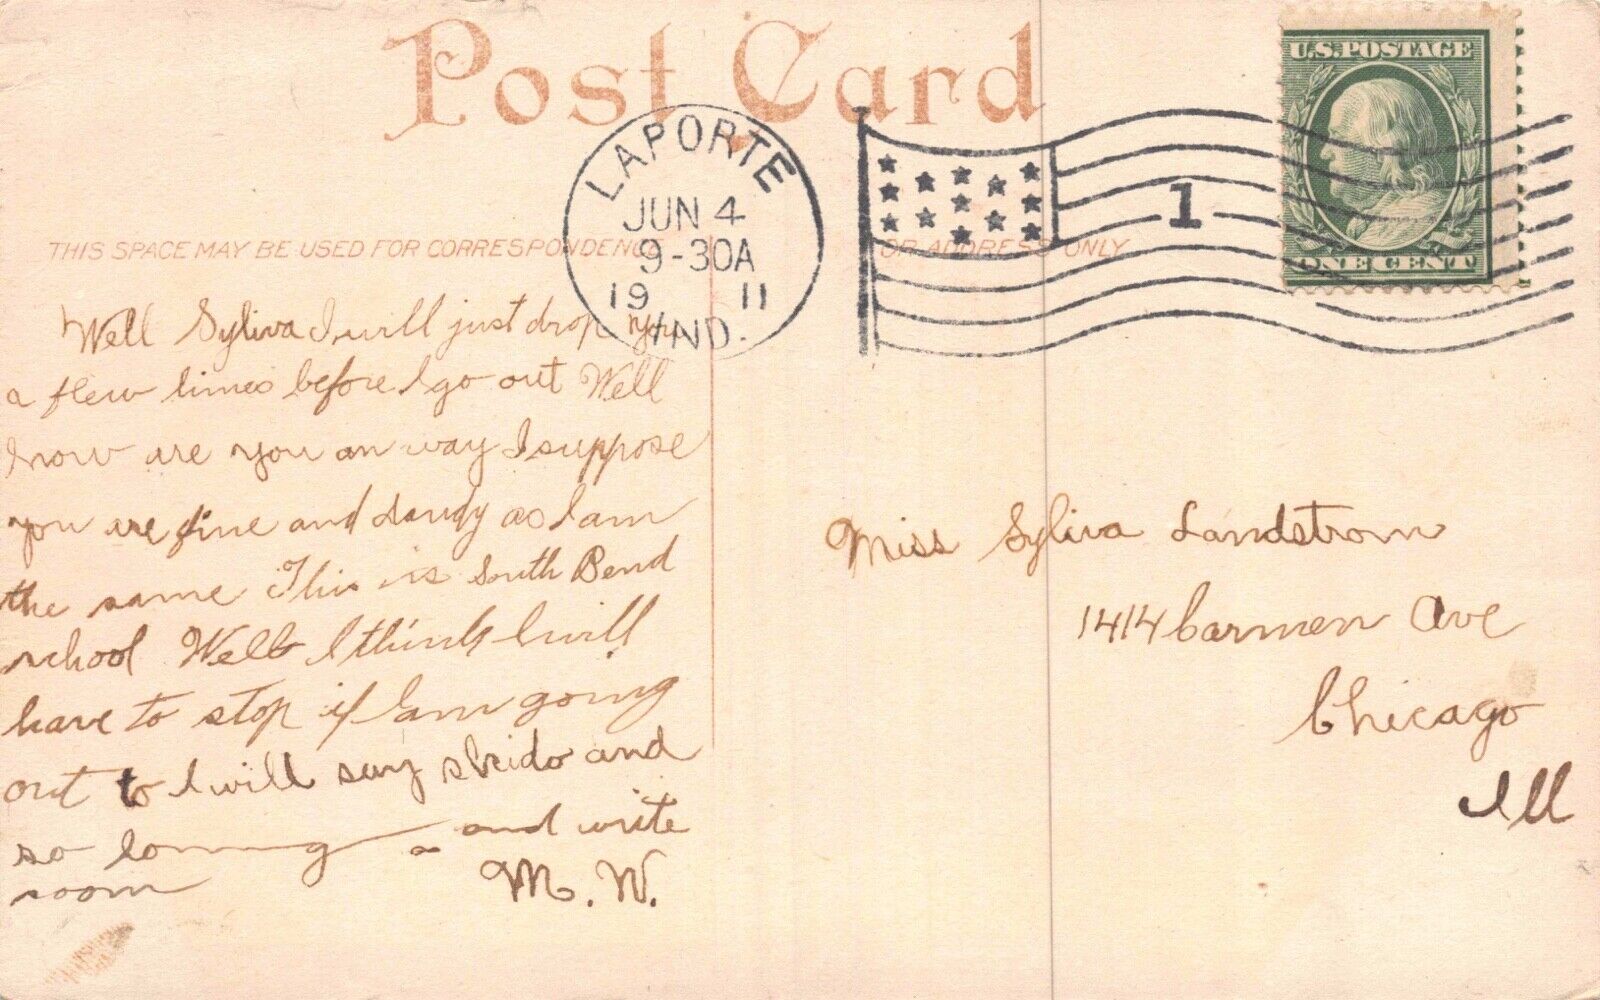 Post Card
U.S. POSTAGE
ONE CENT
LAPORTE
JUN 4
9-30A
19 11
IND.
1
THIS SPACE MAY BE USED FOR CORRESPONDENCE
OR ADDRESS ONLY
Well Syliva I will just drop you
a flew limes before I go out Well
how are you an way I suppose
you are fine and dandy as I am
the same This is South Bend
school Well I think I will
have to stop if I am going
out to I will say skido and
so long and write
soom M. W.
Miss Syliva Landstrom
1414 Carmen Ave
Chicago
Ill